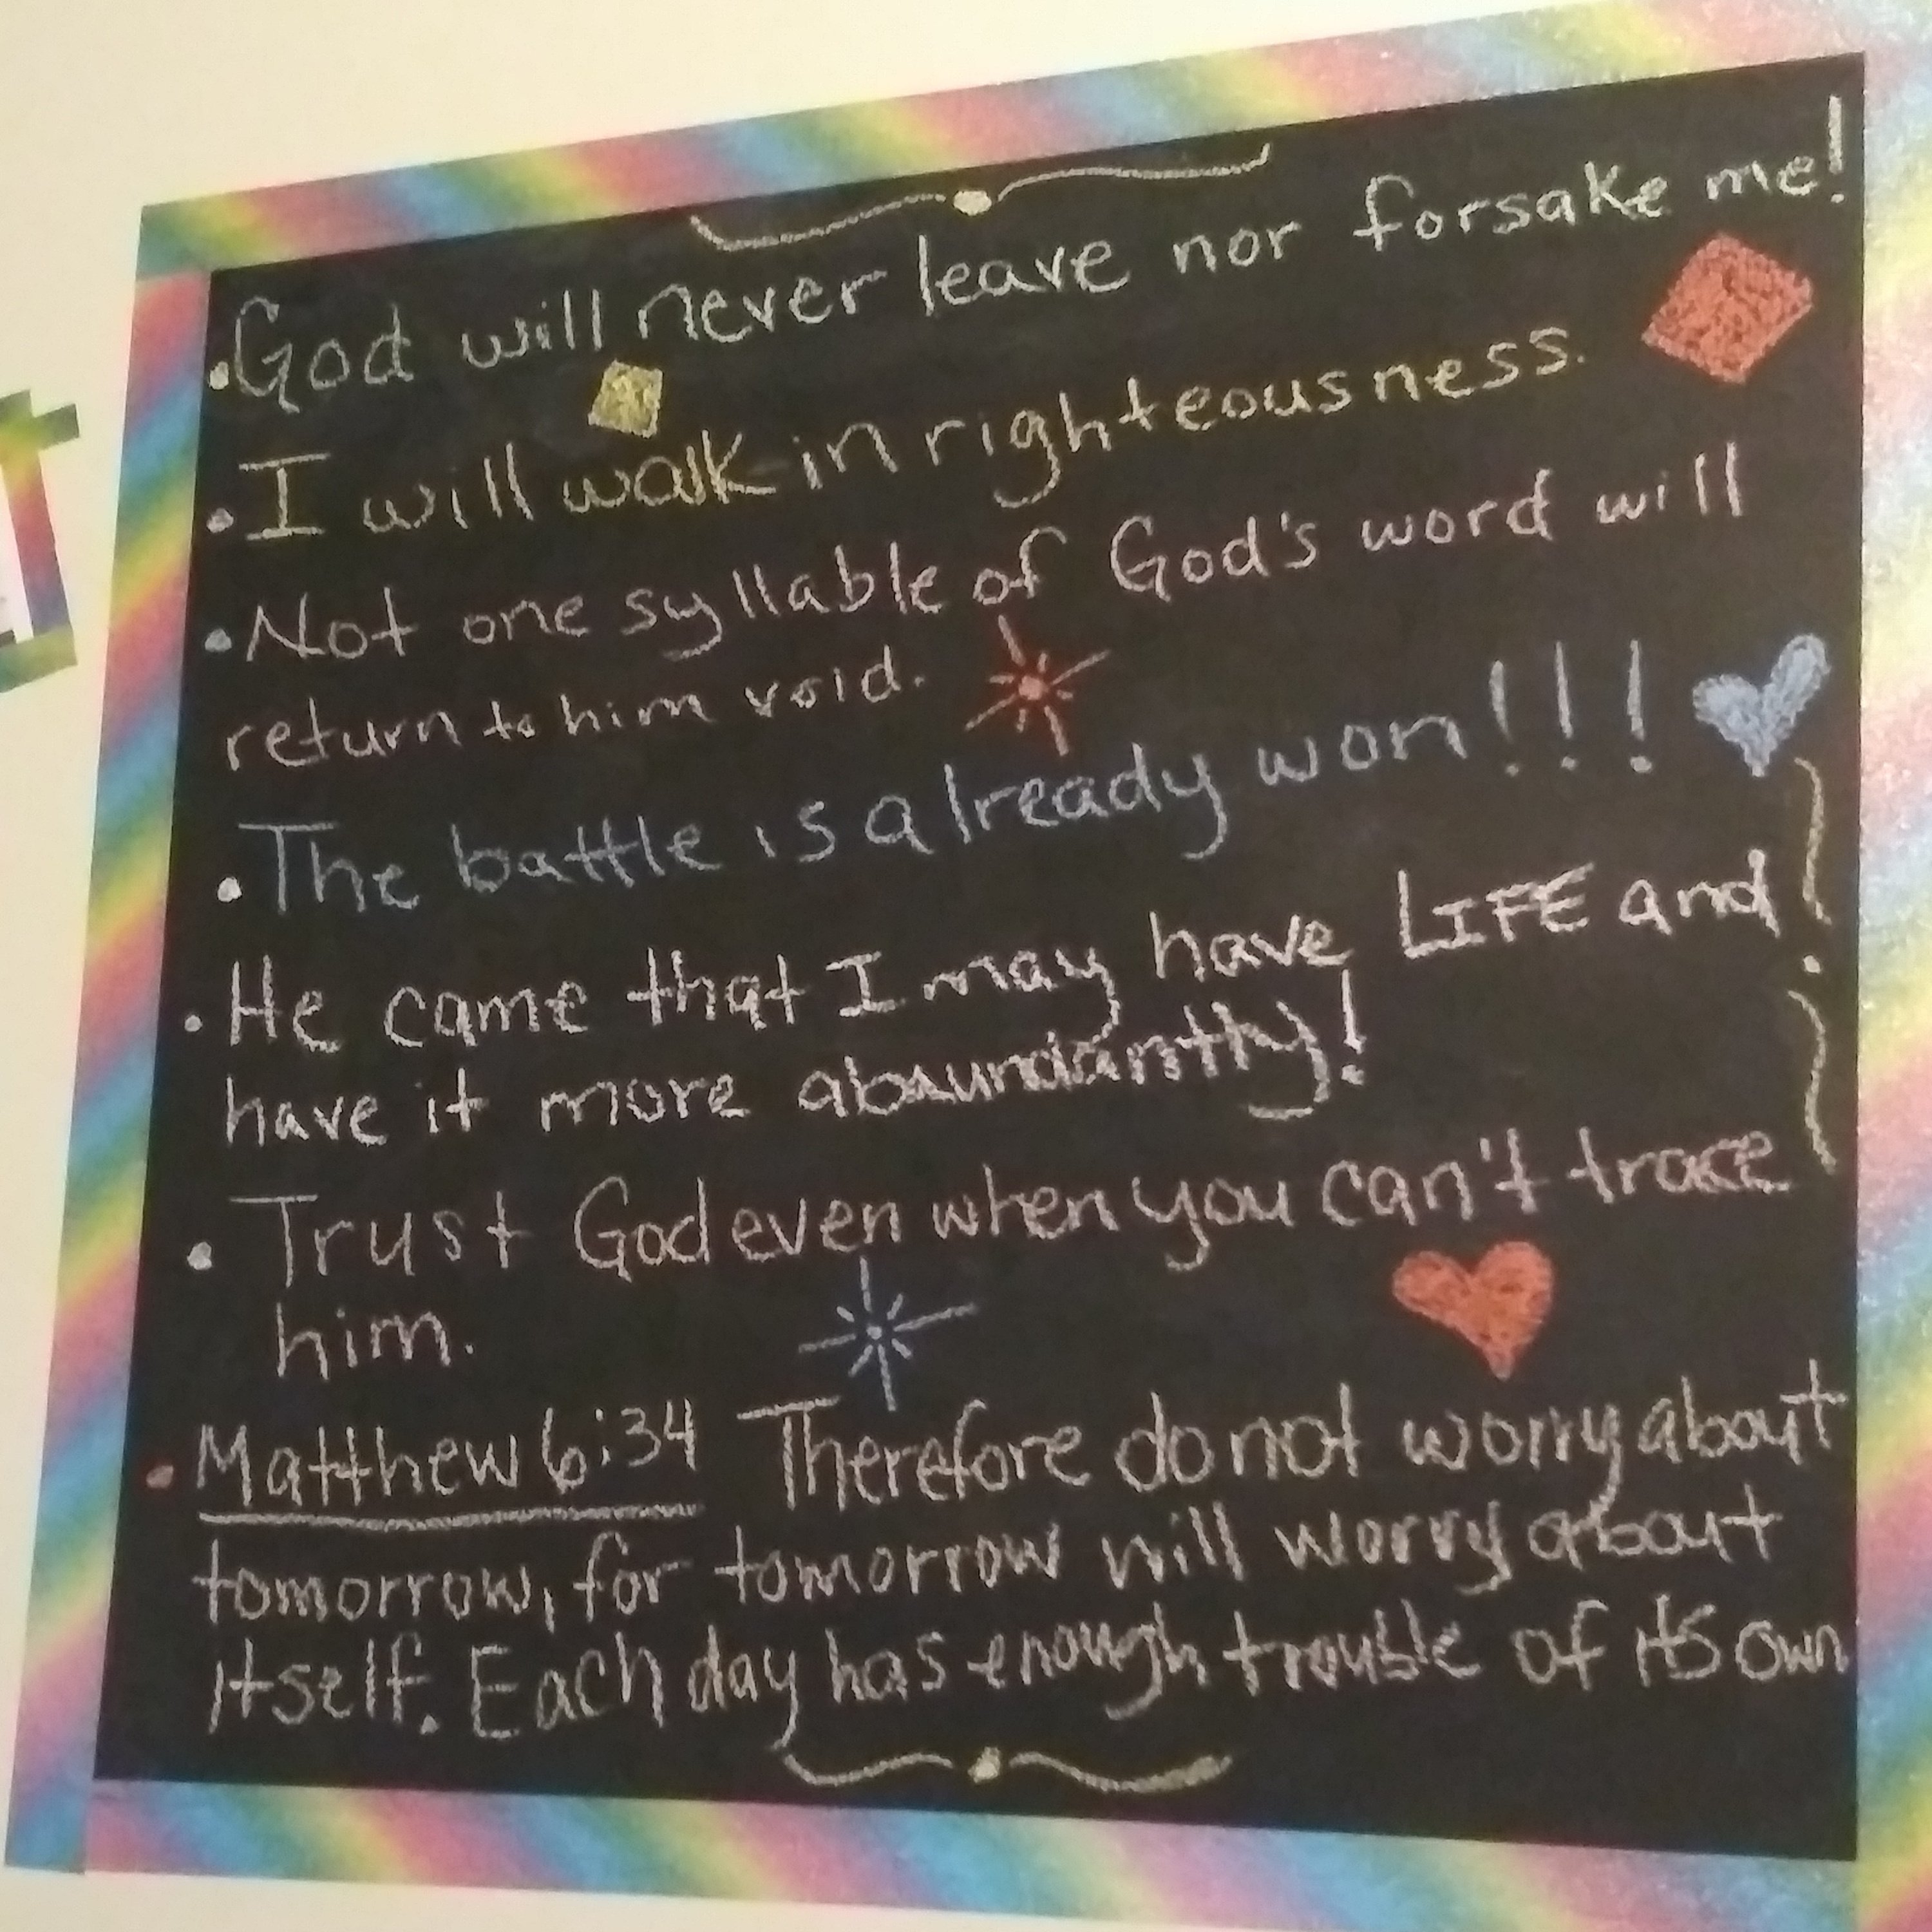 • God will never leave nor forsake me!
• I will walk in righteousness.
• Not one syllable of God's word will
return to him void.
• The battle is already won!!!
• He came that I may have LIFE and
have it more abundantly!
• Trust God even when you can't trace
him.
• Matthew 6:34 Therefore do not worry about
tomorrow, for tomorrow will worry about
itself. Each day has enough trouble of its own